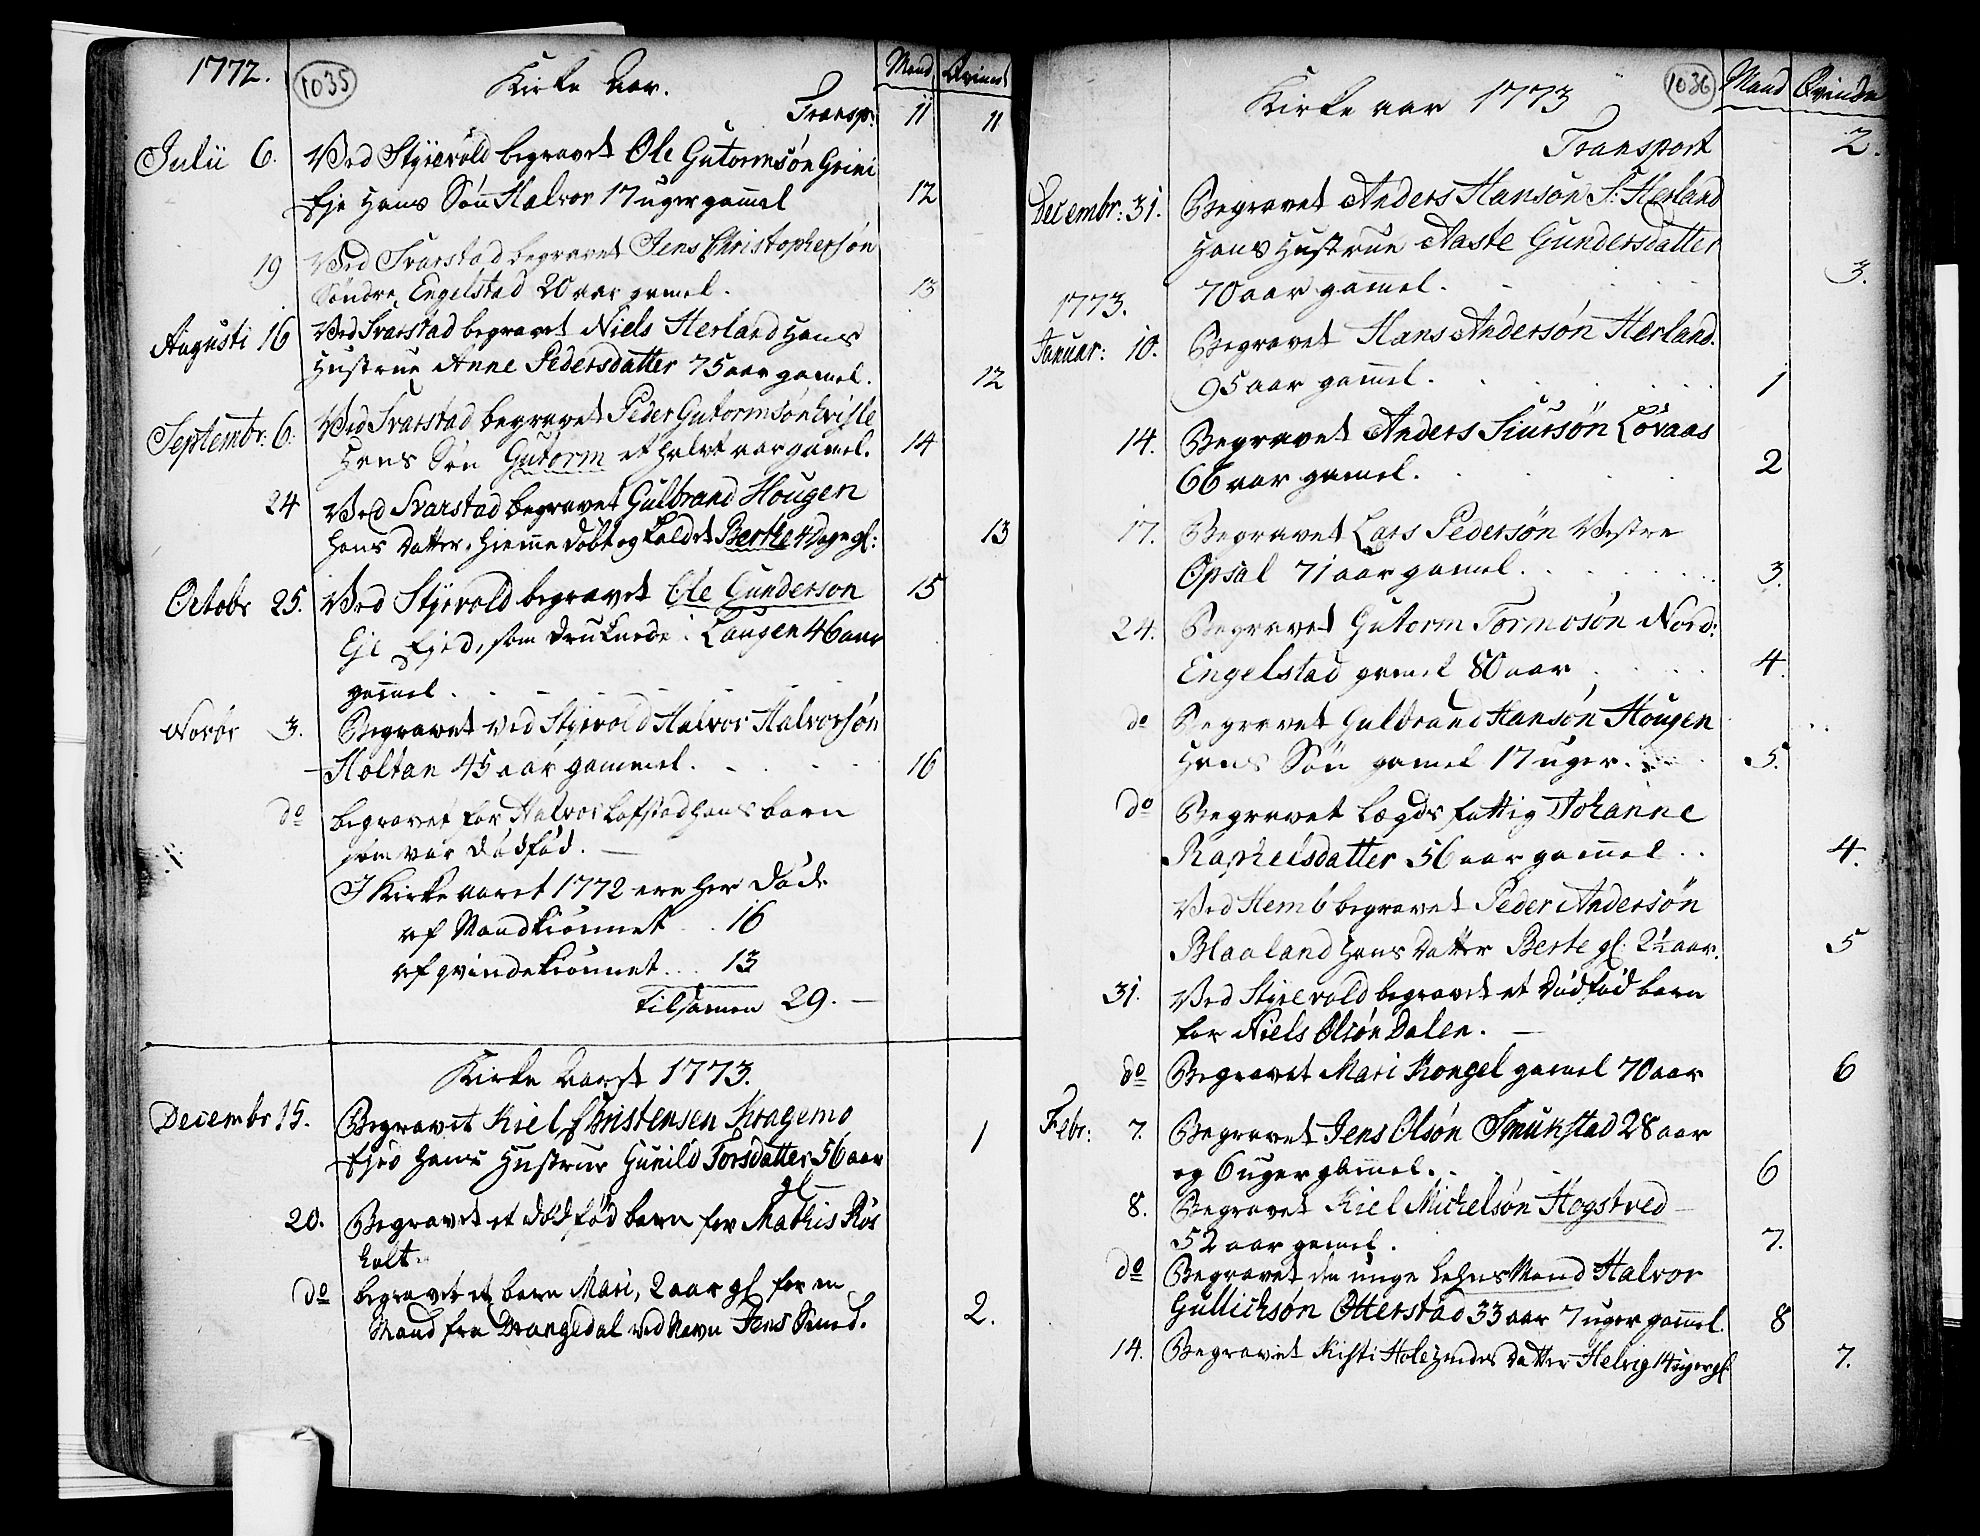 1772.
1035
Kirke Aar.
Mand
Qvinde
Transp: 11 11
Julii 6. Ved Styrevold begravet Ole Gutormsøn Grini
Eje hans Søn Halvor 17 uger gam̄el 12
19 Ved Svarstad begravet Jens Christophersøn
Søndre Engelstad 20 aar gamel. 13
Augusti 16 Ved Svarstad begravet Niels Herland hans
Hustrue Anne Pedersdatter 75 aar gamel. 12
Septembr: 6. Ved Svarstad begravet Peder Gutormsøn
hans Søn Gutorm et halvt aar gamel. 14
24 Ved Svarstad begravet Gulbrand Hougen
hans Datter, hiemme døbt og kaldet Berthe 4 Dage gl: 13
Octobr 25. Ved Styrvold begravet Ole Gunderson 15
Eje, som druknede i Laugen 46 aar
gam̄el.
Novbr 3. Begravet ved Styrvold Halvor Halvorsøn
Holtan 45 aar gammel. 16
do begravet for Halvor Lofstad hans barn
som var dødfød.
I Kirke aaret 1772 ere her døde
af Mandkiønnet 16
af qvindekiønnet 13
tilsamen 29.
Kirke Aaret 1773.
Decembr 15. Begravet Kiel Christensen Kragemo
Ejed hans Hustrue Gunild Torsdatter 56 aar 1
gl
20. Begravet et dødfød barn for Mathis Røs
holt.
do begravet et barn Mari, 2 aar gl. for en
Mand fra Drangedal ved Navn Jens Smed. 2.
Kirke aar 1773
1036
Mand
Qvinde
Transport 2.
Decembr: 31. Begravet Anders Hansøn S: Herland
hans Hustrue Aaste Gundersdatter
70 aar gam̄el. 3.
1773.
Januar: 10. Begravet Hans Andersøn Herland.
95 aar gam̄el. 1
14. Begravet Anders Siursøn Løvaas
66 aar gamel. 2
17. Begravet Lars Pedersøn Vestre
Opsal 71 aar gamel. 3.
24. Begravet Gutorm Tormosøn Nord:
Engelstad gamel 80 aar 4.
do Begravet Gulbrand Hansøn Hougen
hans Søn gamel 17 uger. 5.
do Begravet Lægds fattig Johanne
Raphelsdatter 56 aar gam̄el. 4.
Ved Hemb begravet Peder Andersøn
Blaaland hans Datter Berte gl. 2½ aar. 5
31. Ved Styrevold begravet et Dødfød barn
for Niels Olsøn Dalen.
do Begravet Mari Kongel gamel 70 aar 6
Febr: 7. Begravet Jens Olsøn Smukstad 28 aar
og 6 uger gam̄el. 6
8. Begravet Kiel Michelsøn Hogstved
52 aar gamel. 7.
do Begravet den unge Lehns Mand Halvor
Gullichsøn Otterstad 33 aar 7 uger gam̄el. 8
14. Begravet Kisti Datter Helvig 14 uger gl. 7.